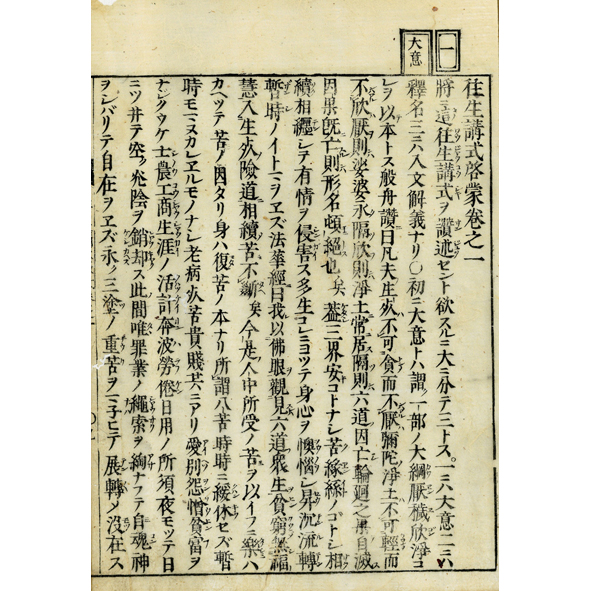 一
大意
往生講式啓蒙巻之一
將ニ這往生講式ヲ讃述セント欲スルニ大ニ分テ三トス。一ニハ大意二ニハ
釋名三ニハ入文解義ナリ〇初ニ大意トハ謂ク一部ノ大綱厭穢欣淨コ
レヲ以本トス般舟讃曰凡夫生死不可貪而不厭彌陀淨土不可輕而
不欣厭則娑婆永隔欣則淨土常居隔則六道因亡輪廻之果自滅
因果既亡則形名頓絶也矣蓋三界安コトナシ苦縁絲ノゴトシ相
續相纏シテ有情ヲ侵害ス多生コレニヨツテ身心ヲ懊惱シ昇沉流轉
暫時ノイトミヲヱズ法華經曰我以佛眼觀見六道衆生貧窮無福
慧入生死險道相續苦不斷矣今是人中所受ノ苦ヲ以イフニ樂ハ
カヘツテ苦ノ因タリ身ハ復苦ノ本ナリ所謂八苦時時ニ緩休セズ暫
時モマヌカヱルモノナシ老病死苦貴賤共ニアリ愛別怨憎貧富ヲ
ナシウケ士農工商生涯ノ活計奔波勞倦日用ノ所須夜モツテ日
ニツ井テ空ク光陰ヲ銷却ス此間唯罪業ノ繩索ヲ絢ナフテ自魂神
ヲシバリテ自在ヲヱズ永ク三塗ノ重苦ヲマ子ヒテ展轉ノ沒在ス